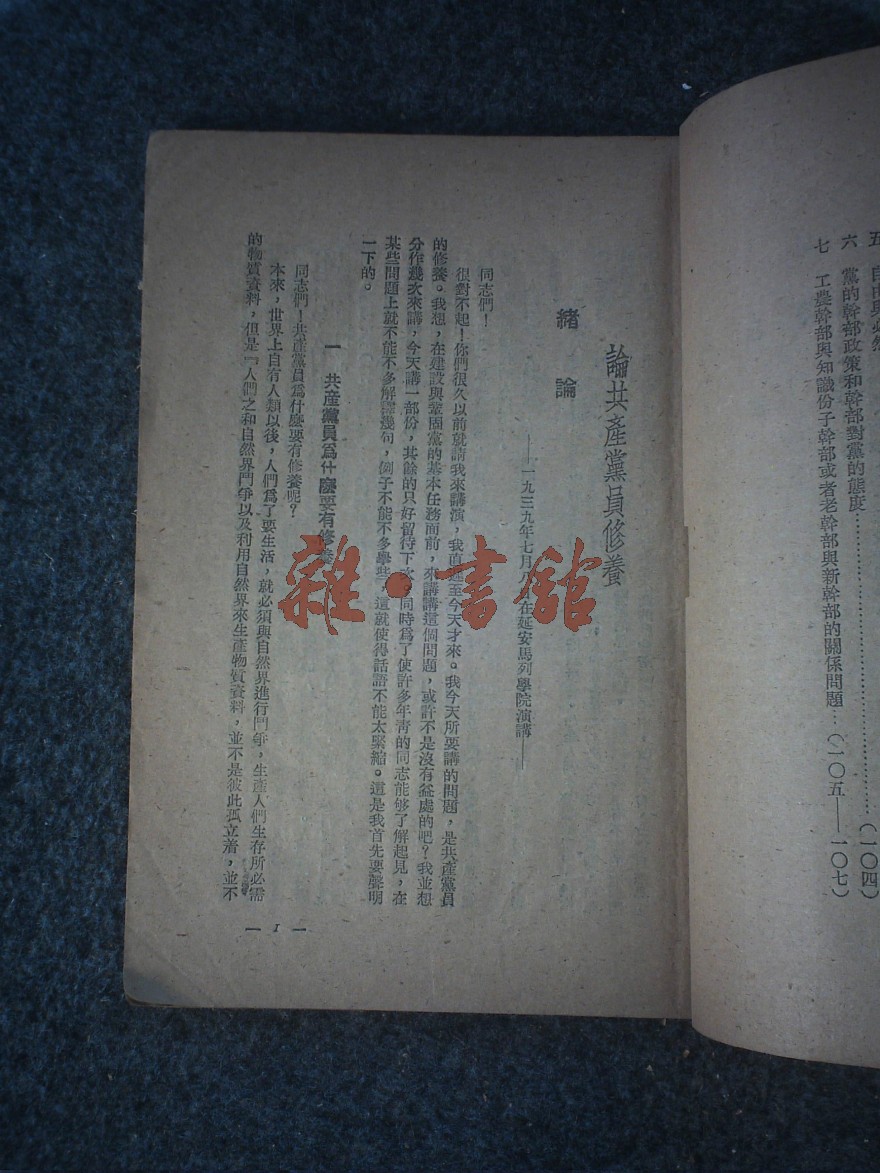 自由與必然
六 黨的幹部政策和幹部對黨的態度……(一〇四)
七 工農幹部與知識份子幹部或者老幹部與新幹部的關係問題…(一〇五——一〇七)
論共產黨員修養
——一九三九年七月在延安馬列學院演講——
緒論
同志們!
很對不起!你們很久以前就請我來講演,我直延至今天才來。我今天所要講的問題,是共產黨員
的修養。我想,在建設與鞏固黨的基本任務面前,來講講這個問題,或許不是沒有益處的吧?我並想
分作幾次來講,今天講一部份,其餘的只好留待下次。同時為了使許多年青的同志能够了解起見,在
某些問題上就不能不多解釋幾句,例子不能不多舉些,這就使得話語不能太緊縮。這是我首先要聲明
一下的。
一 共產黨員為什麼要有修養
同志們!共產黨員為什麼要有修養呢?
本來,世界上自有人類以後,人們為了要生活,就必須與自然界進行鬥爭,生產人們生存所必需
的物質資料,但是『人們之和自然界鬥爭以及利用自然界來生產物質資料,並不是彼此孤立着,並不
— 1 —
雜·書館